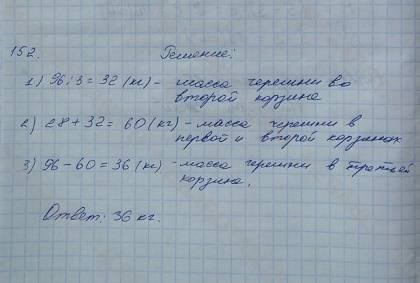 152. Решение:
1) 96:3=32 (кг) - масса черешни во
второй корзине
2) 28+32=60 (кг) - масса черешни в
первой и второй корзинах
3) 96-60=36 (кг) - масса черешни в третьей
корзине.
Ответ: 36 кг.